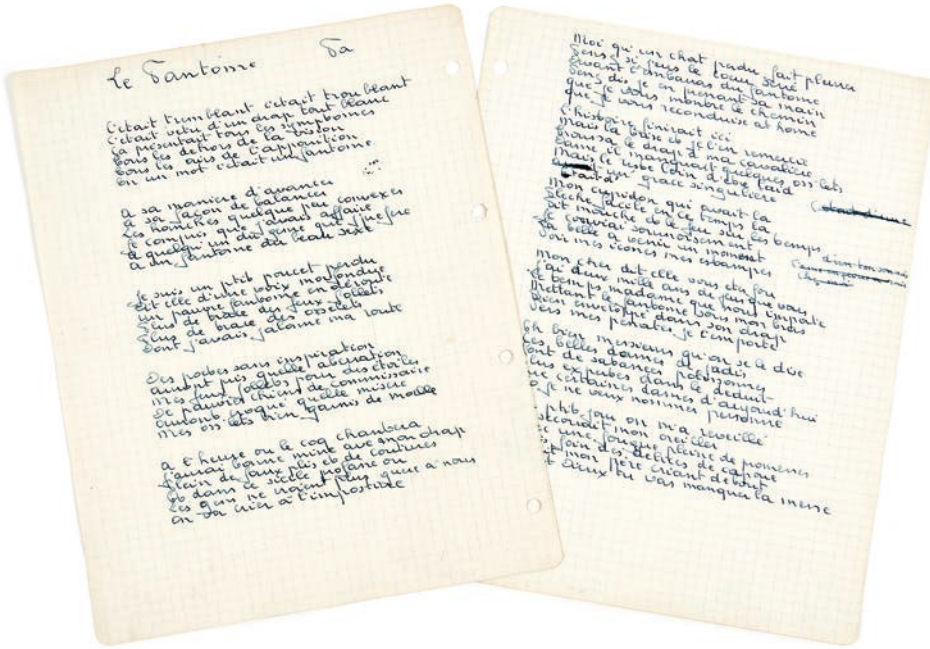 Le Fantôme Fa
C'était tremblant c'était troublant
C'était vêtu d'un drap tout blanc
Ça présentait tous les symptômes
Tous les dehors de la vision
Tous les airs de l'apparition
En un mot c'était un fantôme
A sa manière d'avancer
A sa façon de balancer
Les hanches quelque peu convexes
Je compris que j'avais affaire
A quelqu'un du genre que j'préfère
A un fantôme du beau sexe
Je suis un p'tit poucet perdu
Dit elle d'une voix morfondue
Un pauvre fantôme en déroute
Plus de trace des feux follets
Plus de trace des osselets
Dont j'avais jalonné ma route
Des poètes sans inspiration
Auront pris quelle aberration
Mes feux follets pour des étoiles
De pauvres chiens de commissaire
Auront croqué quelle misère
Mes oss'lets bien garnis de moelle
A l'heure où le coq chantera
J'aurai bonne mine avec mon drap
Plein de faux plis et de coutures
Et dans ce siècle profane où
Les gens ne croient plus guère à nous
On va crier à l'imposture
Moi qu'un chat perdu fait pleurer
Pensez si j'eus le cœur serré
Devant l'embarras du fantôme
Venez dis je en prenant sa main
Que je vous montre le chemin
Que je vous reconduise at home
L'histoire finirait ici
Mais la brise et je l'en remercie
Troussa le drap d'ma cavalière
Dame il manquait quelques oss'lets
Mais le reste loin d'être laid
Était d'une grâce singulière
Mon cupidon qui avait la
Flèche facile en ce temps là
Fit mouche et le feu sur les tempes
Je conviai sournoisement
La belle à venir un moment
Voir mes icônes mes estampes
Mon cher dit elle vous êtes fou
J'ai deux mille ans de plus que vous
Le temps madame que nous importe
Mettant le fantôme sous mon bras
Bien enveloppé dans son drap
Vers mes pénates je l'emporte
Eh bien messieurs qu'on se le dise
Ces belles dames de jadis
Sont de satanées polissonnes
Plus expertes dans le déduit
Que certaines dames d'aujourd'hui
Et je ne veux nommer personne
p'tit jour on m'a réveillé
secouait mon oreiller
une fougue pleine de promesses
foin des délices de Capoue
mon père criant debout
Dieux tu vas manquer la messe